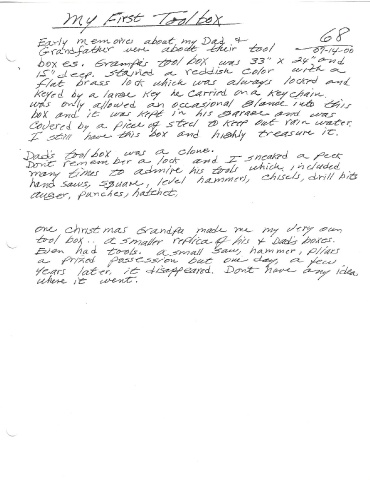 My First Toolbox
68
Early memories about my Dad &
Grandfather were about their tool
07-14-00
boxes. Grampa's tool box was 33" x 24" and
15" deep, stained a reddish color with a
flat brass lock which was always locked and
keyed by a large key he carried on a key chain.
was only allowed an occasional glance into this
box and it was kept in his garage and was
covered by a piece of steel to keep out rain water.
I still have this box and highly treasure it.
Dad's tool box was a clone.
Don't remember a lock and I sneaked a peek
many times to admire his tools which included
hand saws, square, level hammers, chisels, drill bits
auger, punches, hatchet,
one Christmas Grandpa made me my very own
tool box.. a smaller replica of his & Dad's boxes.
Even had tools. a small saw, hammer, pliars
a prized possession but one day, a few
years later, it disappeared. Dont have any idea
where it went.